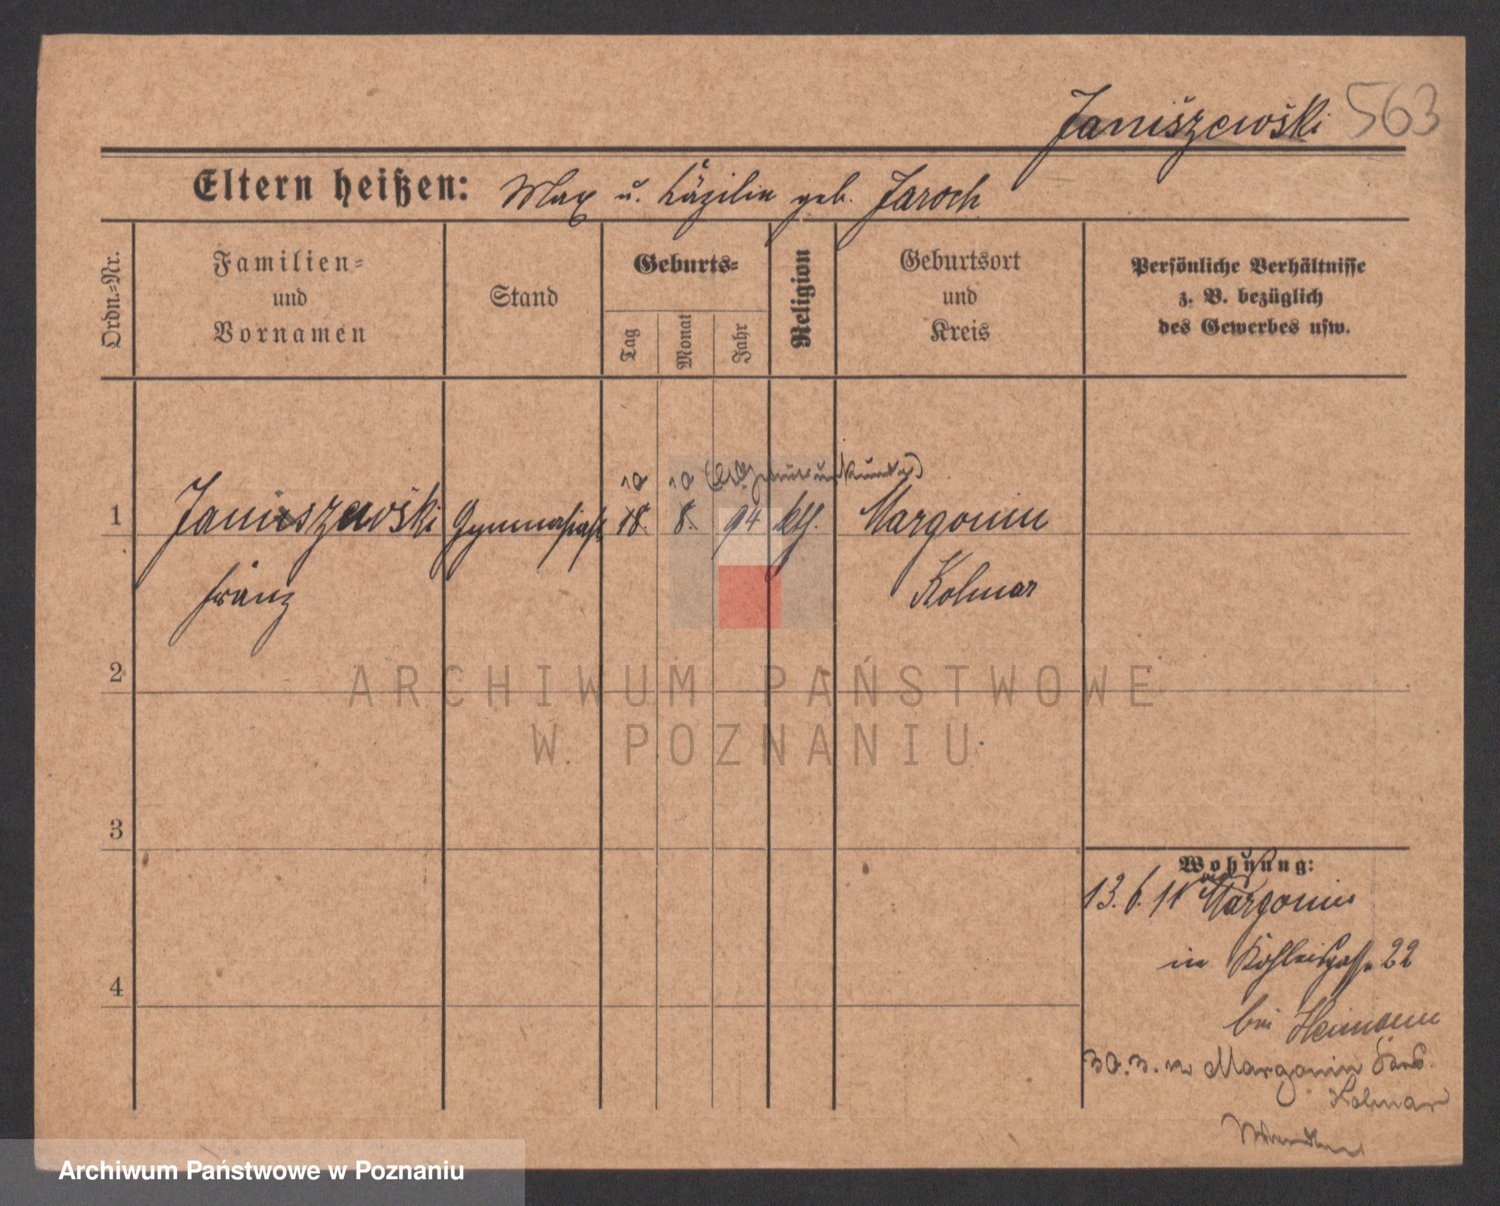 Janiszewski 563
Eltern heißen: Max u. Cäzilie geb. Jaroch
Ordn.=Nr.
Familien=
und
Vornamen
Stand
Geburts=
Tag
Monat
Jahr
Religion
Geburtsort
und
Kreis
Persönliche Verhältnisse
z. B. bezüglich
des Gewerbes usw.
10 10
1 Janiszewski Gymnasiast 18. 8. 94 kth. Margonin
Franz Kolmar
2
ARCHIWUM PAŃSTWOWE
W POZNANIU
3
Wohnung:
13. 6. 11 Margonin
in 22
bei Heimann
4
30.3. Margonin
Kolmar
Archiwum Państwowe w Poznaniu